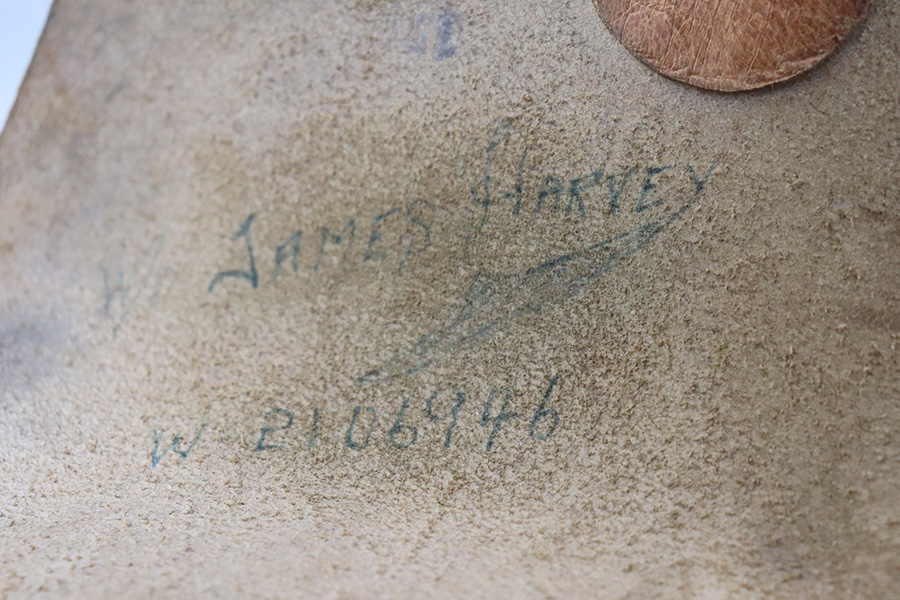 JAMES HARVEY
W 2106946